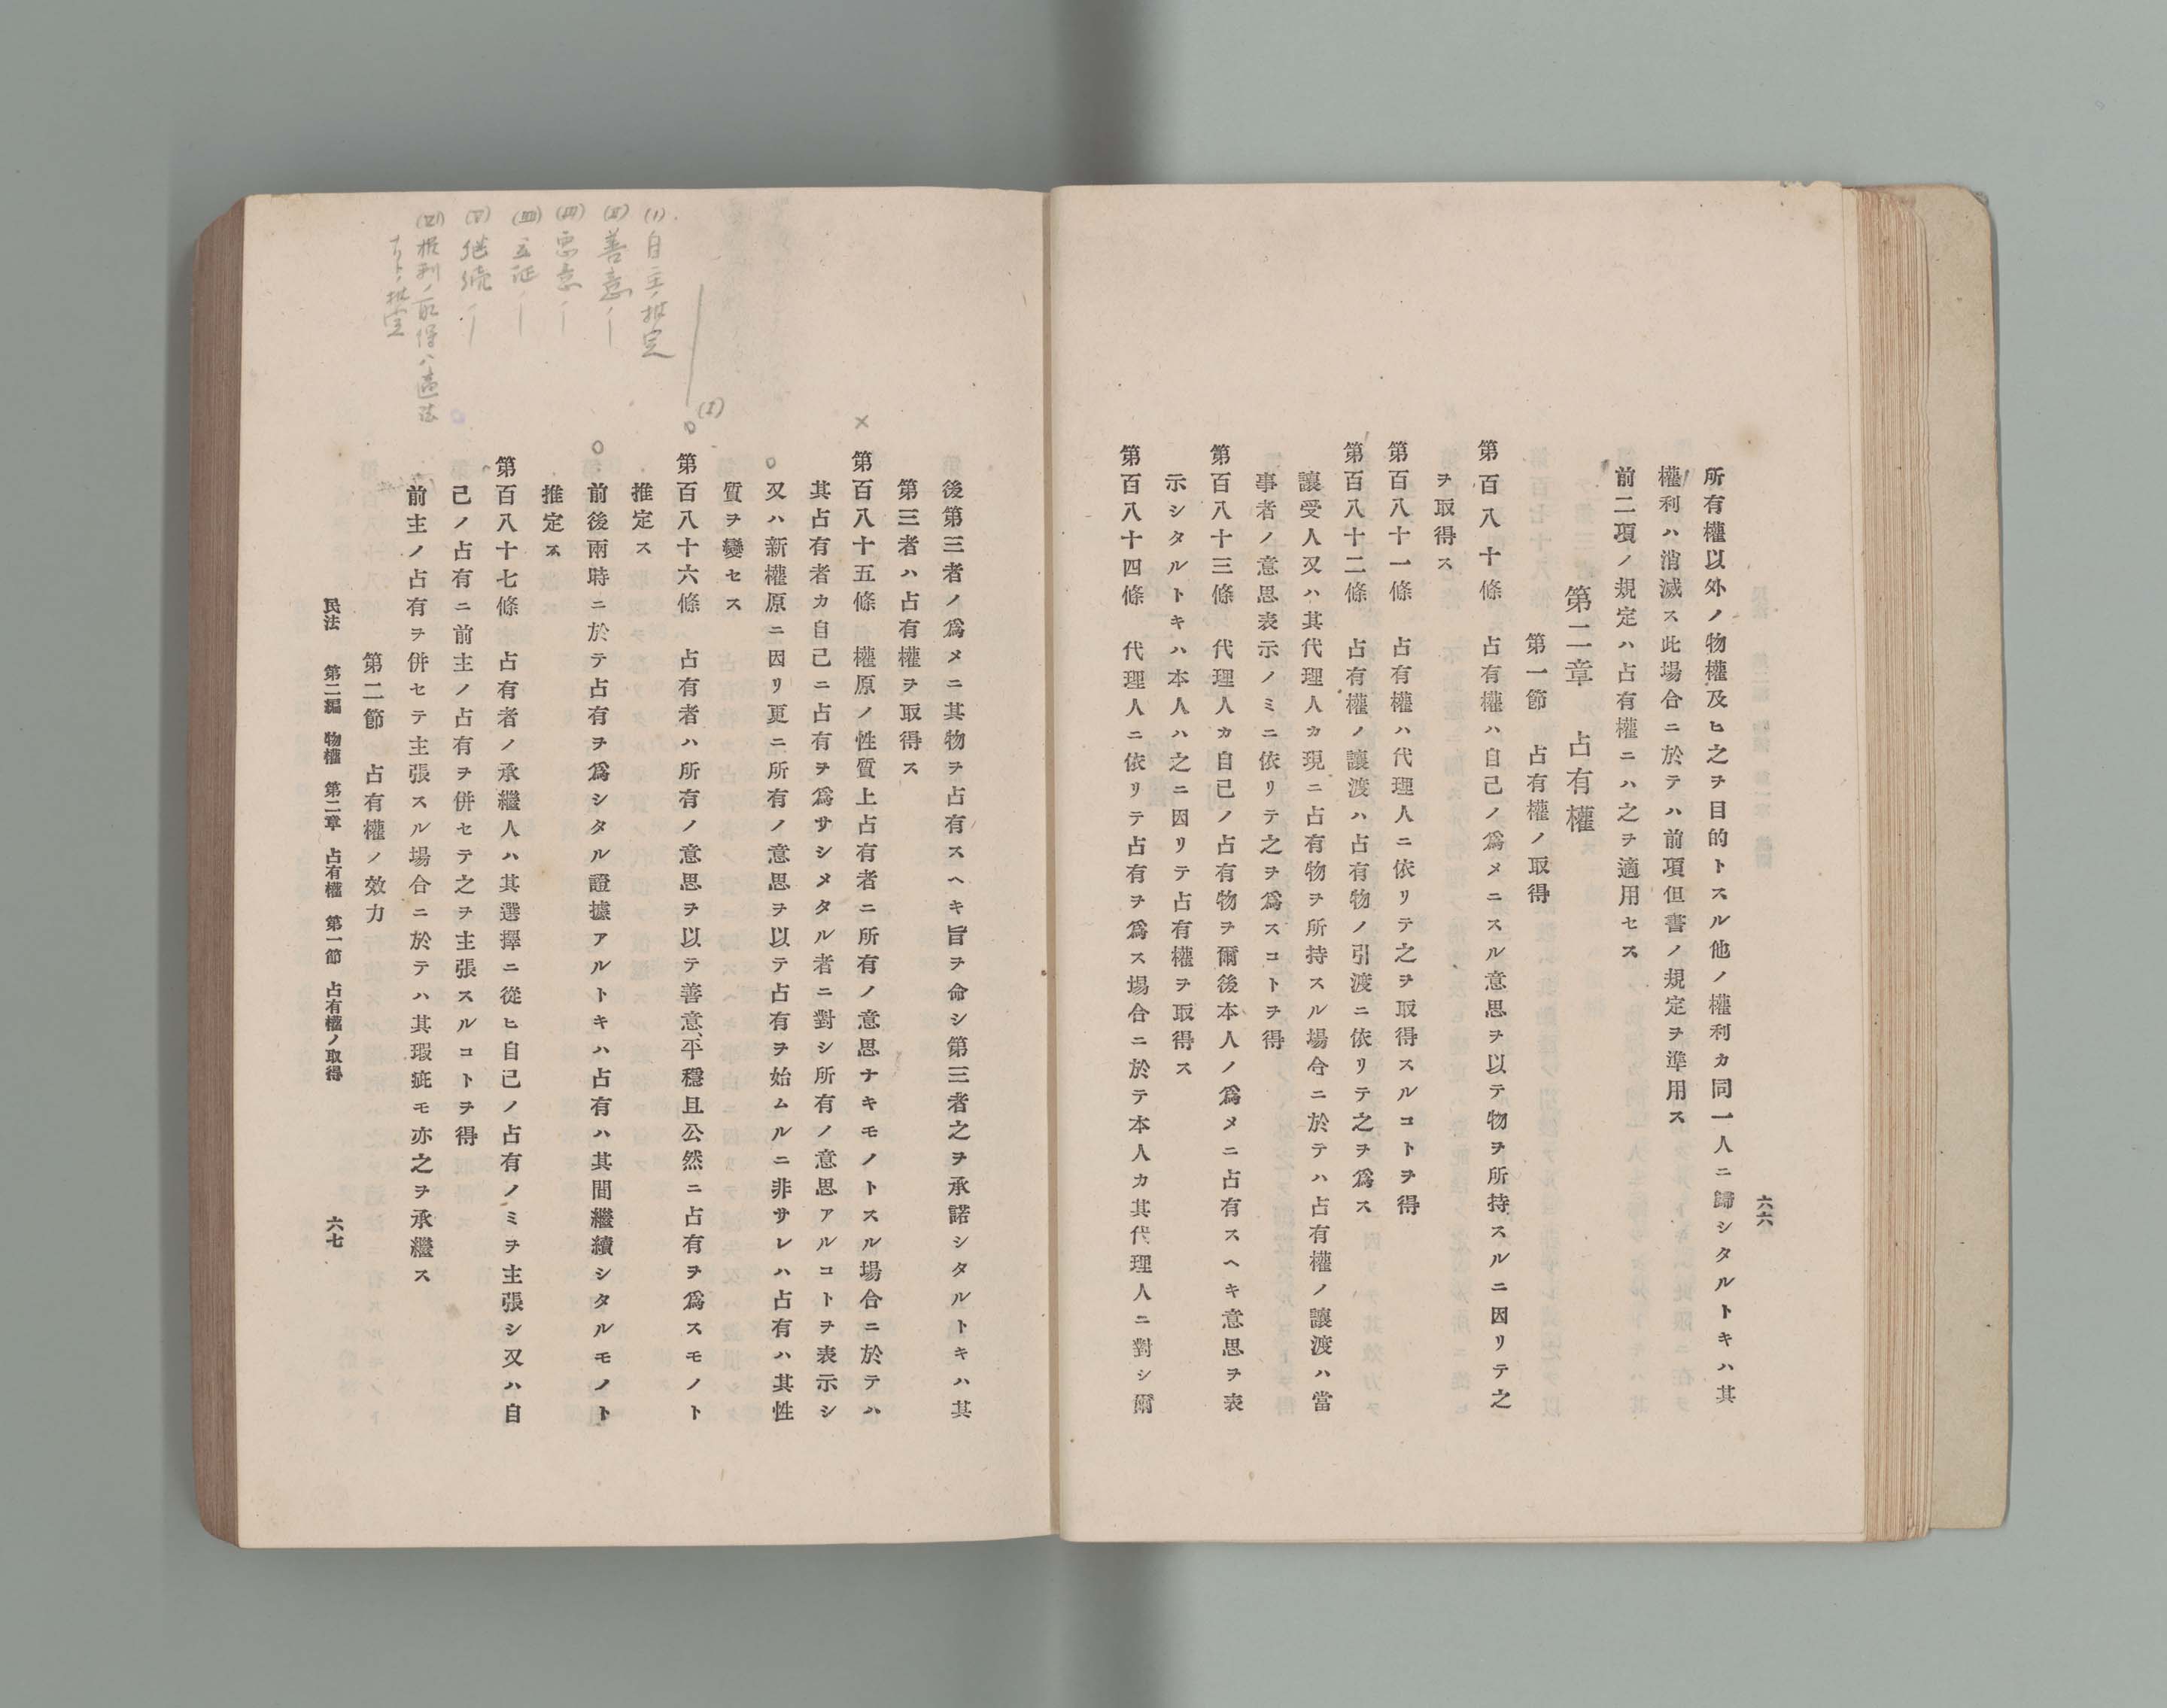 六六
所有權以外ノ物權及ヒ之ヲ目的トスル他ノ權利カ同一人ニ歸シタルトキハ其
權利ハ消滅ス此場合ニ於テハ前項但書ノ規定ヲ準用ス
前二項ノ規定ハ占有權ニハ之ヲ適用セス
第二章 占有權
第一節 占有權ノ取得
第百八十條 占有權ハ自己ノ爲メニスル意思ヲ以テ物ヲ所持スルニ因リテ之
ヲ取得ス
第百八十一條 占有權ハ代理人ニ依リテ之ヲ取得スルコトヲ得
第百八十二條 占有權ノ讓渡ハ占有物ノ引渡ニ依リテ之ヲ爲ス
讓受人又ハ其代理人カ現ニ占有物ヲ所持スル場合ニ於テハ占有權ノ讓渡ハ當
事者ノ意思表示ノミニ依リテ之ヲ爲スコトヲ得
第百八十三條 代理人カ自己ノ占有物ヲ爾後本人ノ爲メニ占有スヘキ意思ヲ表
示シタルトキハ本人ハ之ニ因リテ占有權ヲ取得ス
第百八十四條 代理人ニ依リテ占有ヲ爲ス場合ニ於テ本人カ其代理人ニ對シ爾
後第三者ノ爲メニ其物ヲ占有スヘキ旨ヲ命シ第三者之ヲ承諾シタルトキハ其
第三者ハ占有權ヲ取得ス
× 第百八十五條 權原ノ性質上占有者ニ所有ノ意思ナキモノトスル場合ニ於テハ
其占有者カ自己ニ占有ヲ爲サシメタル者ニ對シ所有ノ意思アルコトヲ表示シ
又ハ新權原ニ因リ更ニ所有ノ意思ヲ以テ占有ヲ始ムルニ非サレハ占有ハ其性
質ヲ變セス
(I)
第百八十六條 占有者ハ所有ノ意思ヲ以テ善意、平穩且公然ニ占有ヲ爲スモノト
推定ス
前後兩時ニ於テ占有ヲ爲シタル證據アルトキハ占有ハ其間繼續シタルモノト
推定ス
第百八十七條 占有者ノ承繼人ハ其選擇ニ從ヒ自己ノ占有ノミヲ主張シ又ハ自
己ノ占有ニ前主ノ占有ヲ併セテ之ヲ主張スルコトヲ得
前主ノ占有ヲ併セテ主張スル場合ニ於テハ其瑕疵モ亦之ヲ承繼ス
第二節 占有權ノ效力
民法 第二編 物權 第二章 占有權 第一節 占有權ノ取得 六七
(I) 自主ノ推定
(II) 善意ノ〃
(V) 継続〃
(VI) 権利ノ取得ハ適法
ナリトノ推定